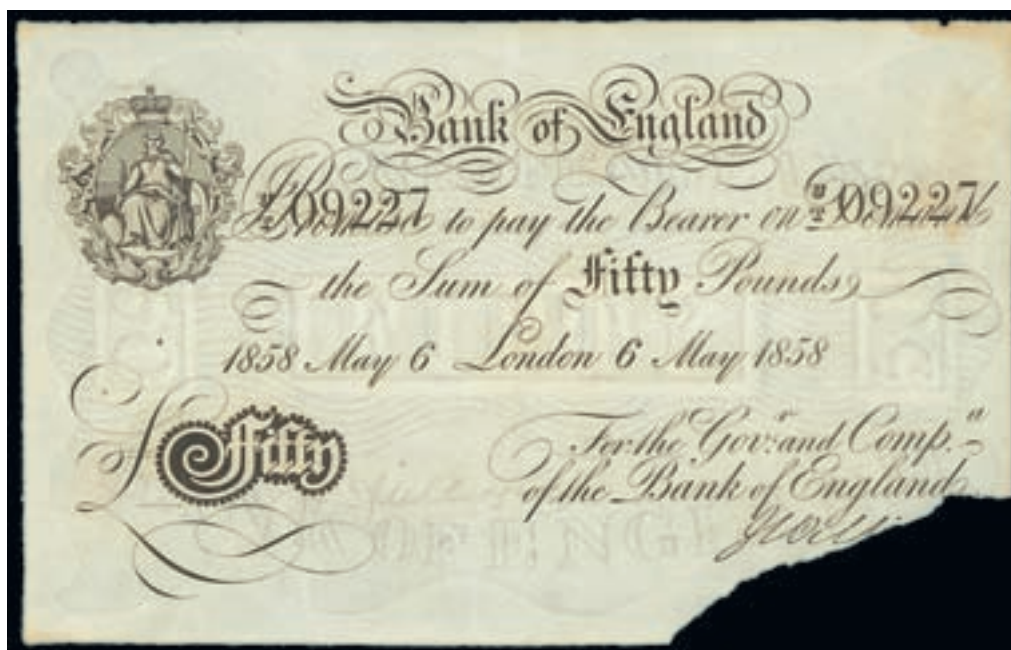 Bank of England
09227 to pay the Bearer on 09227
the Sum of Fifty Pounds
1858 May 6 London 6 May 1858
£ Fifty
For the Govr. and Compa.
of the Bank of England